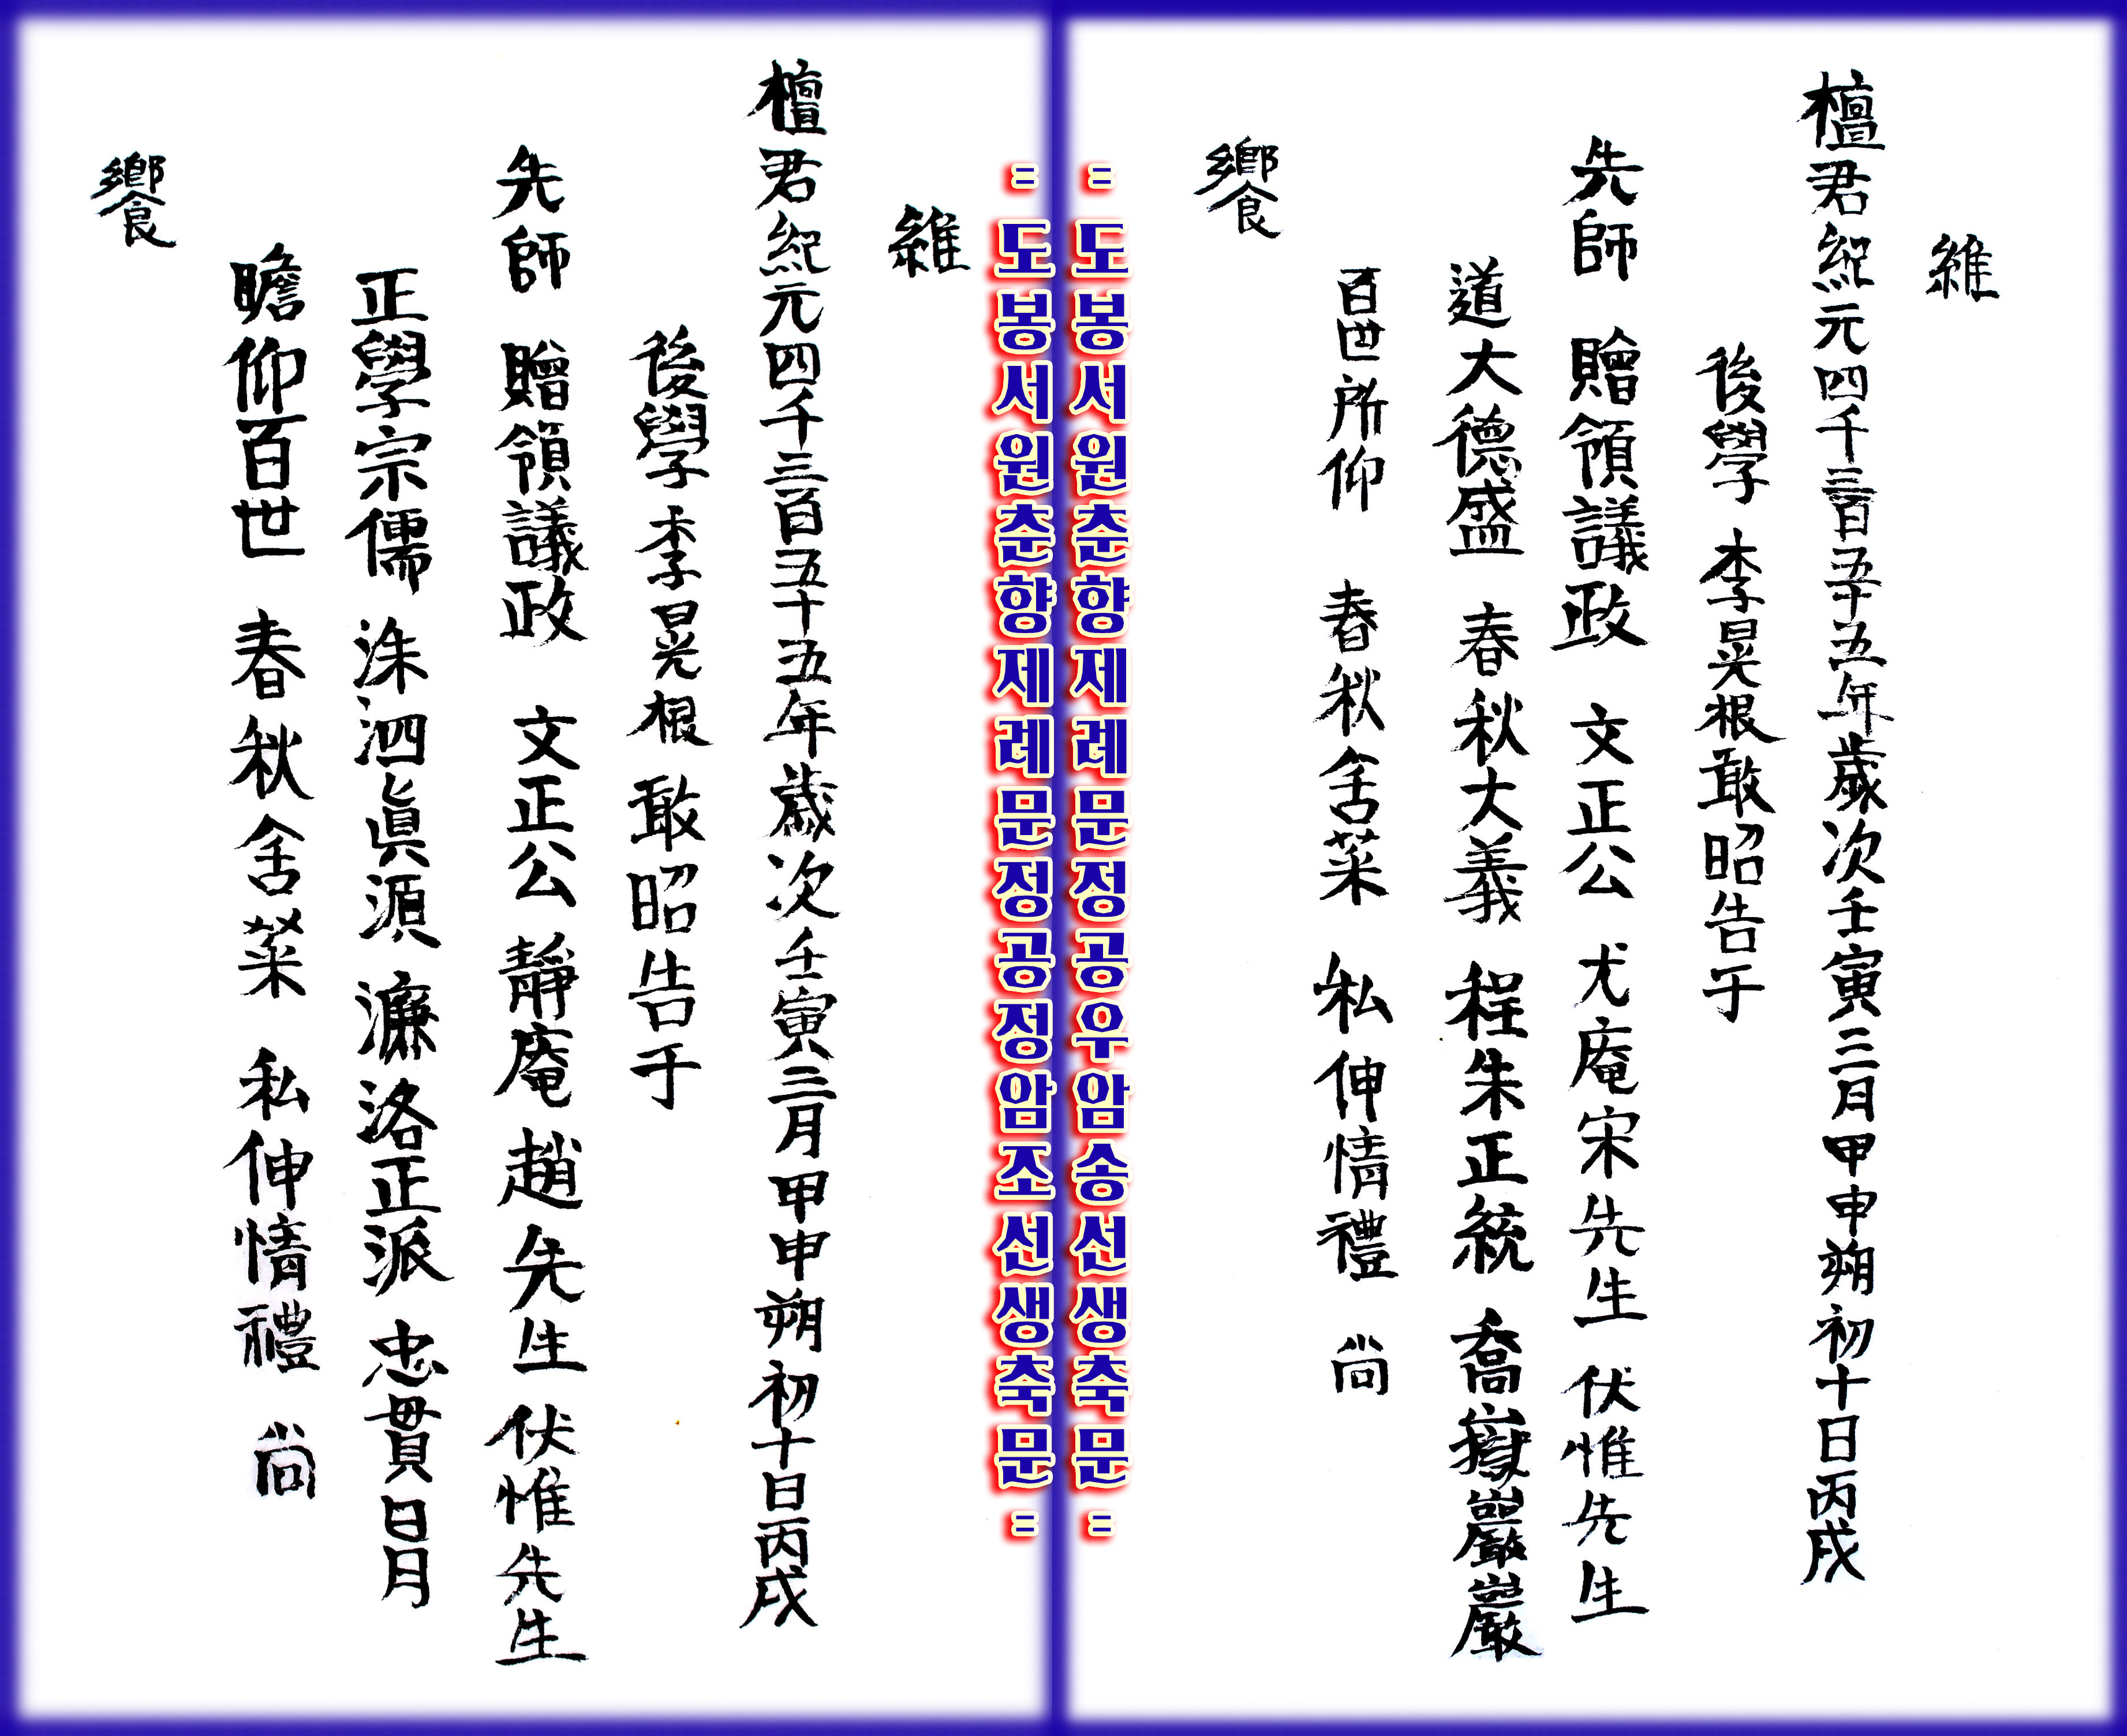 維
檀君紀元四千三百五十五年歲次壬寅三月甲申朔初十日丙戌
後學 李晃根敢昭告于
先師 贈領議政 文正公 尤庵宋先生 伏惟先生
道大德盛 春秋大義 程朱正統 喬嶽巖巖
百世所仰 春秋舍菜 私伸情禮 尙
饗
= 도봉서원춘향제례문정공우암송선생축문 =
= 도봉서원춘향제례문정공정암조선생축문 =
維
檀君紀元四千三百五十五年歲次壬寅三月甲申朔初十日丙戌
後學 李晃根 敢昭告于
先師 贈領議政 文正公 靜庵 趙先生 伏惟先生
正學宗儒 洙泗眞源 濂洛正派 忠貫日月
瞻仰百世 春秋舍菜 私伸情禮 尙
饗